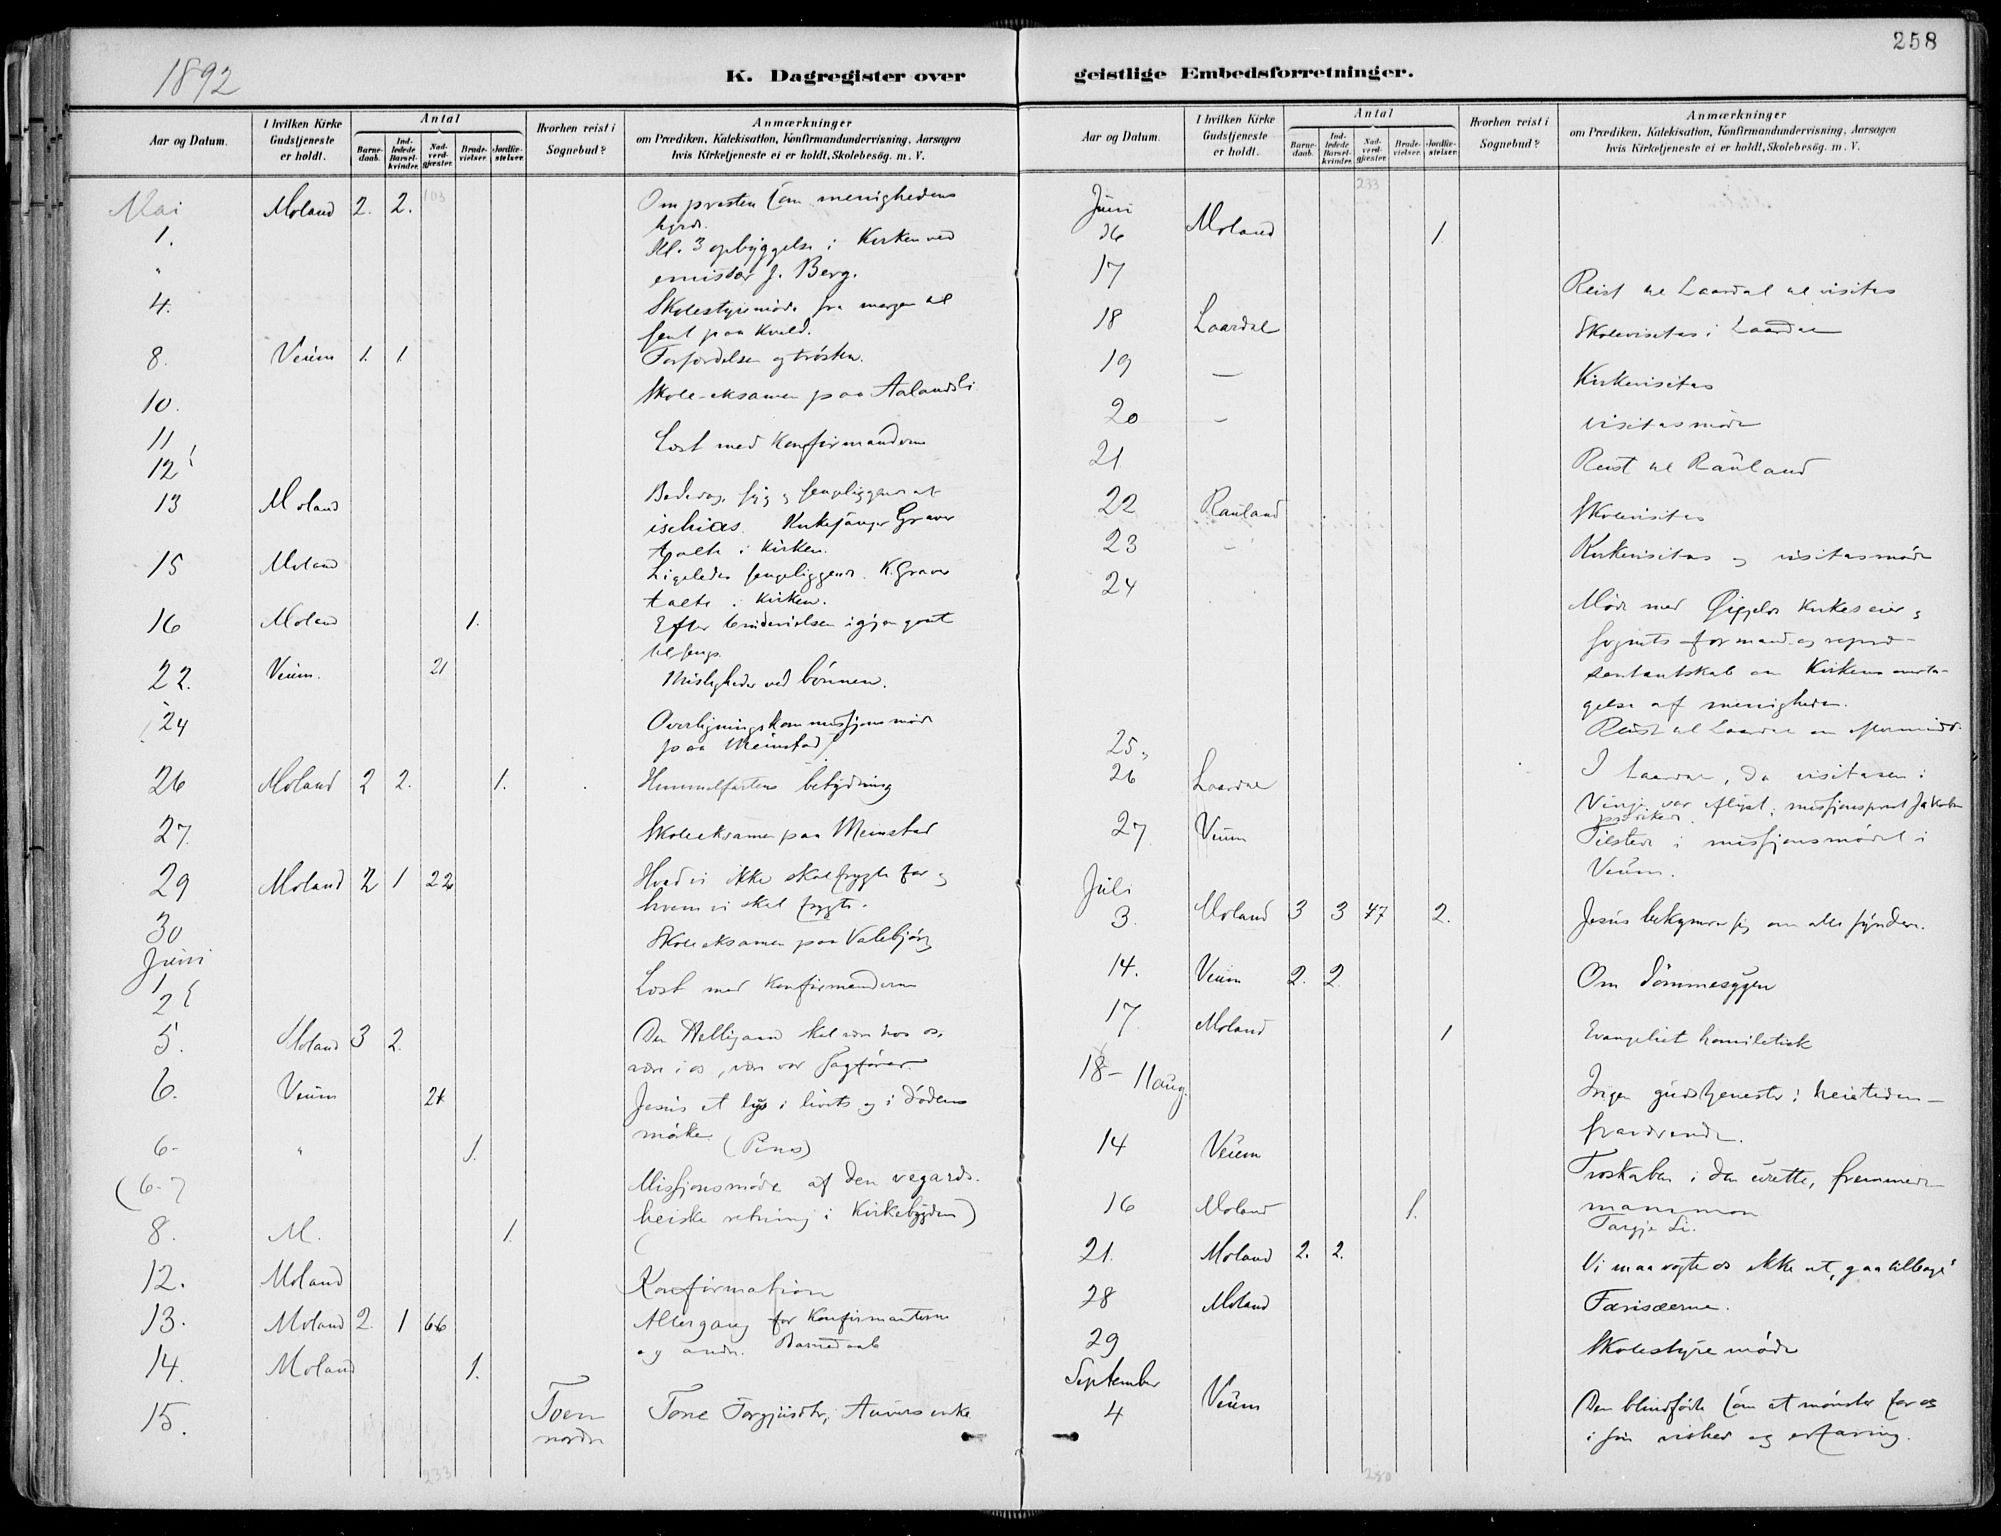 258
1892
K. Dagregister over
geistlige Embedsforretninger.
Aar og Datum.
I hvilken Kirke Gudstjeneste er holdt.
Antal
Barnedaab.
Indledede Barselkvinder.
Nadverdgjester.
Brudevielser.
Jordfæstelser.
Hvorhen reist i Sognebud?
Anmærkninger
om Prædiken, Katekisation, Konfirmandundervisning, Aarsagen
hvis Kirketjeneste ei er holdt, Skolebesög. m. V.
Mai Moland 2. 2. 103 Om presten (om menighedens
1. hyrde.
" Kl. 3 opbyggelse i Kirken ved
emissær J. Berg.
4. Skolestyremøde fra morgen til
sent paa kveld.
8. Veum 1. 1 Forfordelsen og trösten.
10. Skole-eksamen paa Aalandsli
11
12 Læst med Konfirmanderne
13 Moland Bededag, syg og sengeliggende af
ischias. Kirkesanger Graver
talte i Kirken.
15 Moland Ligeledes sengeliggende. K. Graver
talte i Kirken.
16 Moland 1. Efter brudevielsen igjen gaat
tilsengs.
22. Veum. 21 Misligheder ved bönnen.
24 Overligningskommissjonsmøde
paa Meinstad
26 Moland 2 2. 1. Himmelfartens betydning
27. Skoleeksamen paa Meinstad
29 Moland 2 1 22 Hvad vi ikke skal frygte for og
hvem vi skal frygte.
30 Skoleeksamen paa Valebjörg
Juni
1
2 Læst med Konfirmanderne
5. Moland 3 2. Den Helligaand skal være hos os,
være i os, være vor Sagförer.
6. Veum 21 Jesus et lys i livets og i dödens
mørke.
6- " 1. (Pins)
(6-7 Missjonsmøde af den vegards-
heiske retning i Kirkebygden)
8. M. 1.
12. Moland Konfirmation
13. Moland 2. 1 66 Altergang for Konfirmanterne
og andre. Barnedaab
14. Moland 1.
15. Toen Tone Torgjusdtr, Anvers enke
nordre
233
Aar og Datum.
I hvilken Kirke Gudstjeneste er holdt.
Antal
Barnedaab.
Indledede Barselkvinder.
Nadverdgjester.
Brudevielser.
Jordfæstelser.
Hvorhen reist i Sognebud?
Anmærkninger
om Prædiken, Katekisation, Konfirmandundervisning, Aarsagen
hvis Kirketjeneste ei er holdt, Skolebesög. m. V.
233
Juni
16 Moland 1.
17 Reist til Laardal til visitas
18 Laardal Skolevisitas i Laardal
19 — Kirkevisitas
20 — visitasmøde
21 Reist til Rauland
22 Rauland Skolevisitas
23 — Kirkevisitas og visitasmøde
24 Møde med Kirkeseier og
sognets formand og repræ-
sentantskab om Kirkens overta-
gelse af menigheden.
25 Reist til Laardal om eftermidd.
26 Laardal I Laardal, da visitasen i
Vinje var aflyst; missjonsprest Jakobsen
prædikede.
27 Veum Tilstede i missjonsmødet i
Veum.
Juli
3. Moland 3 3 47 2. Jesus bekymrer sig om alle syndere.
14. Veum 2. 2. Om dömmesygen
17. Moland 1 Evangeliet homiletisk
18 – 11 aug. Ingen gudstjeneste i heietiden —
fraværende.
14 Veum Troskaben i den urette, fremmede
mammon
16 Moland 1. Targje Li.
21. Moland 2. 2. Vi maa vogte os ikke at "gaa tilbage"
28 Moland Farisæerne.
29 Skolestyremøde
September
4 Veum Den blindfödte (om et mønster for os
i sin vished og erfaring.
280